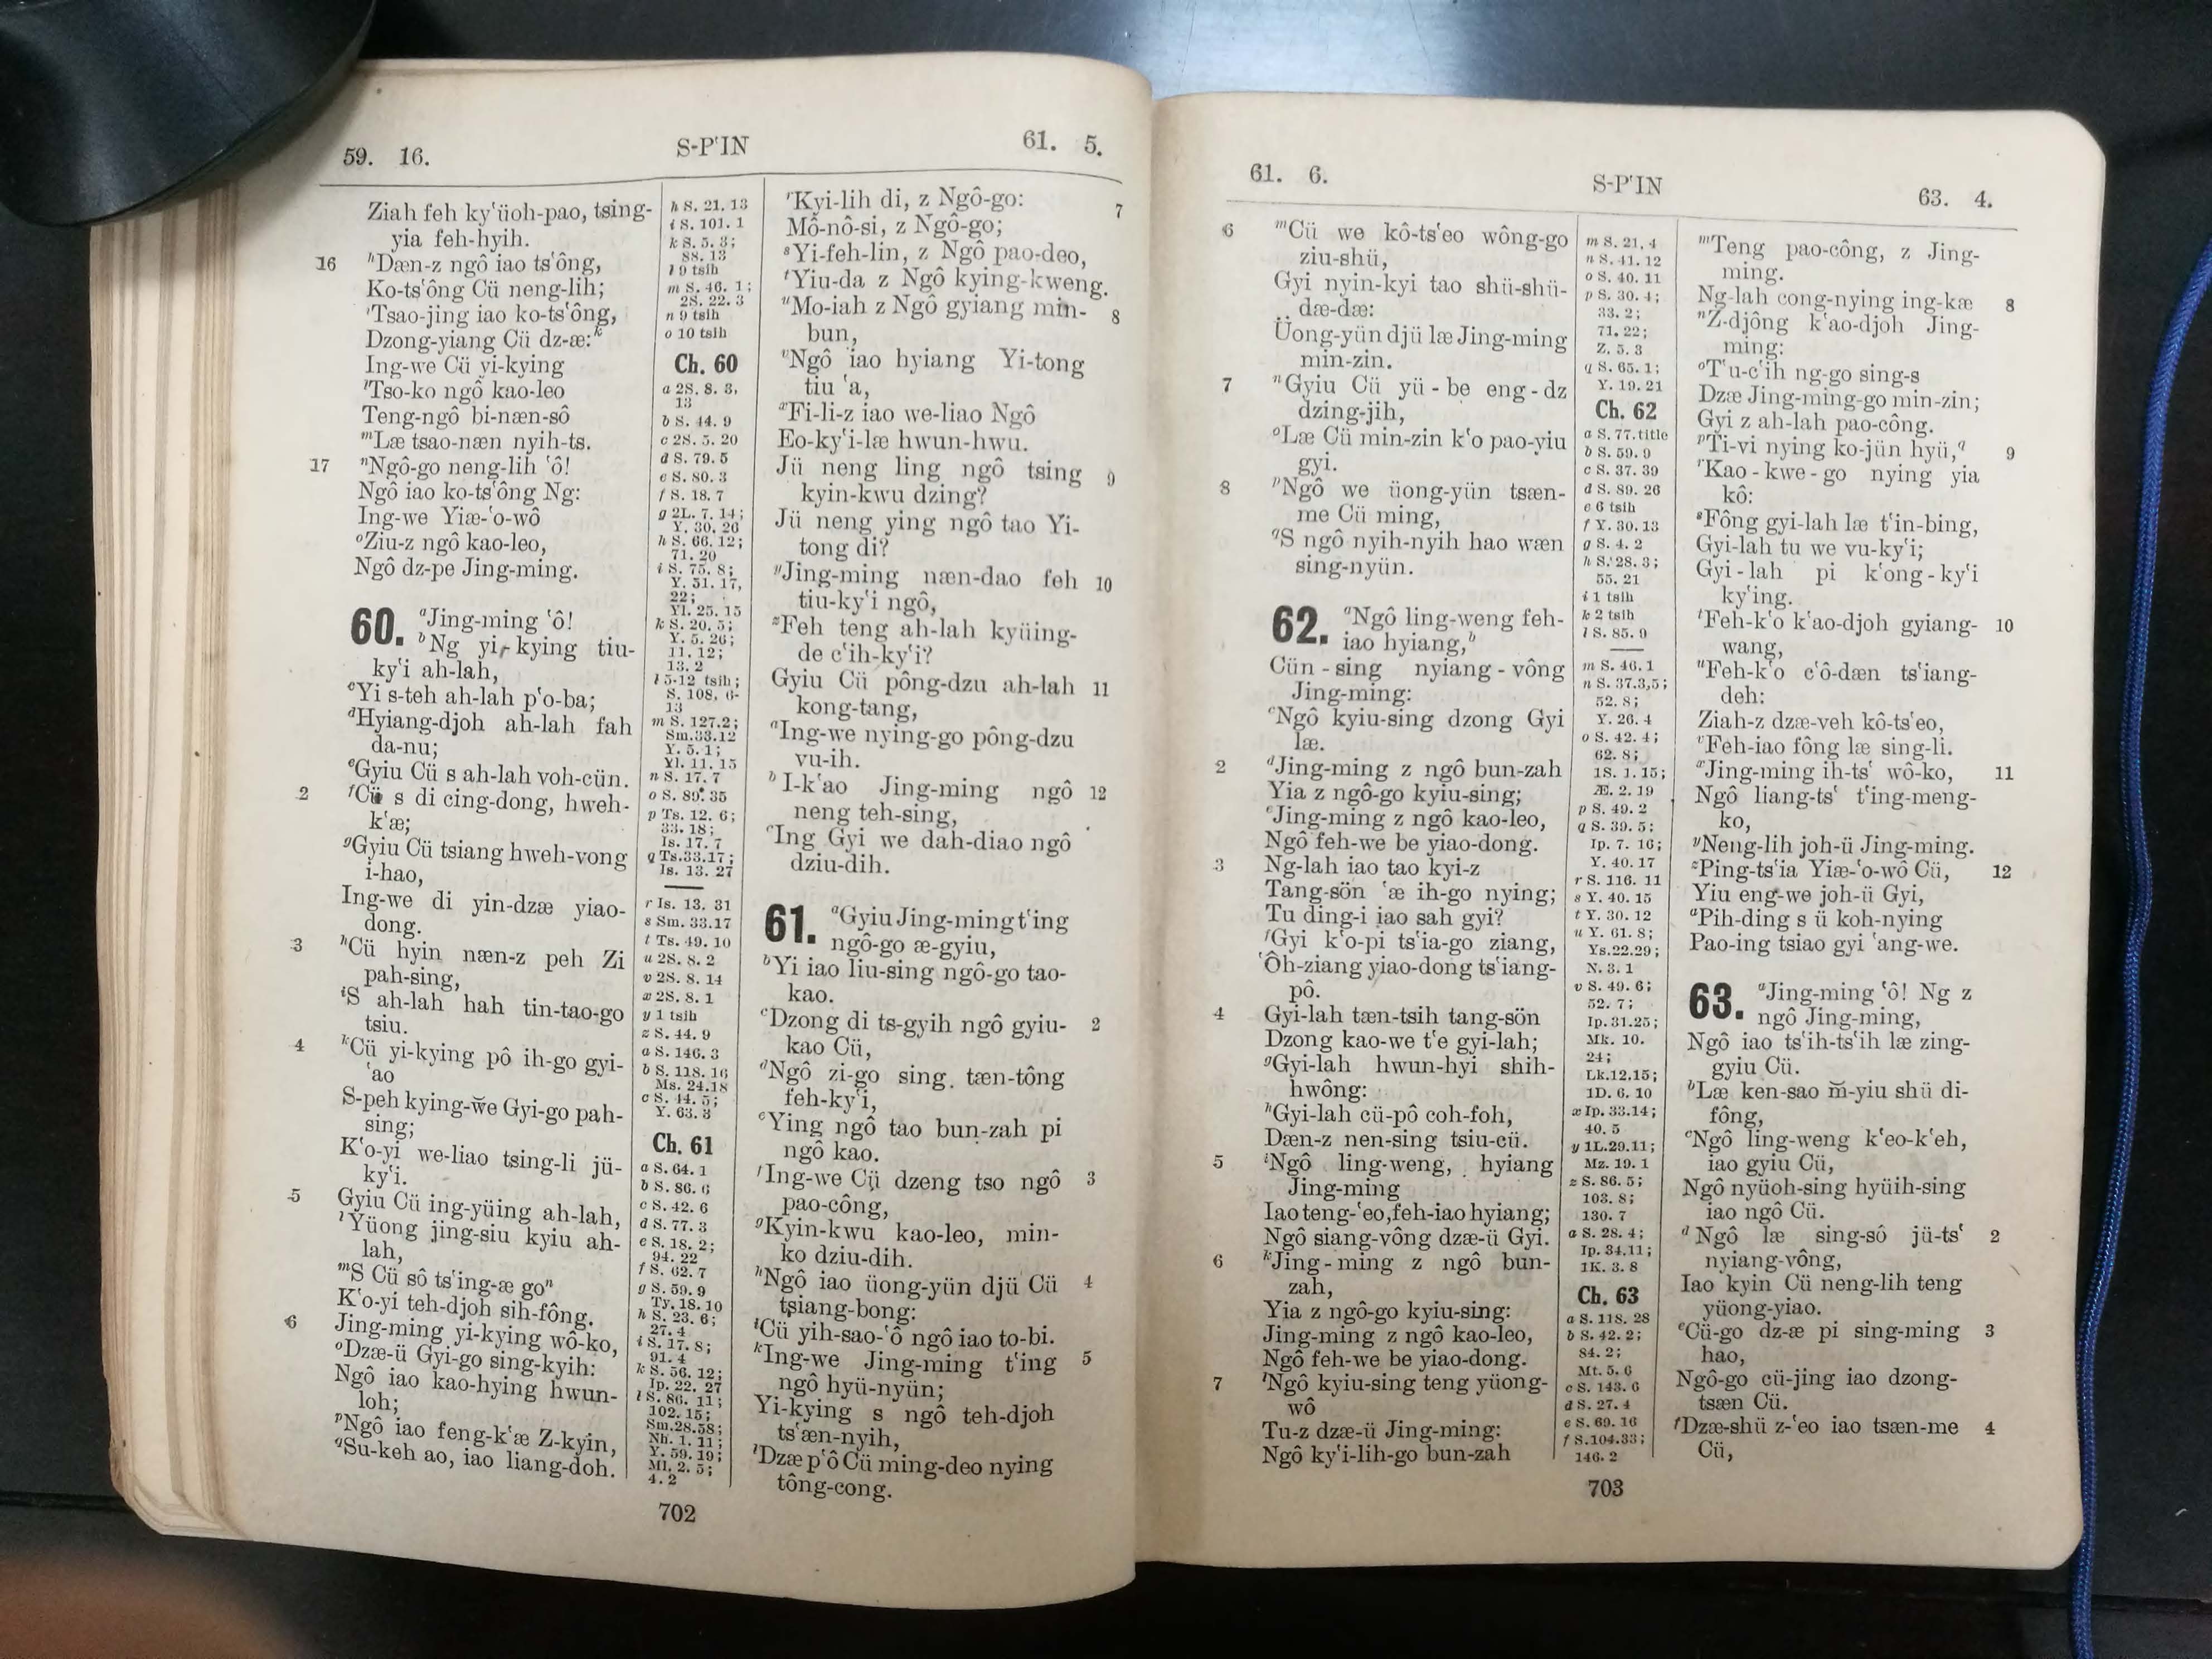 59. 16.
S-P'IN
61. 5.
Ziah feh ky'üoh-pao, tsing-
yia feh-hyih.
16 ʰDæn-z ngô iao ts'ông,
Ko-ts'ông Cü neng-lih;
ⁱTsao-jing iao ko-ts'ông,
Dzong-yiang Cü dz-æ:ᵏ
Ing-we Cü yi-kying
ˡTso-ko ngô kao-leo
Teng-ngô bi-næn-sô
ᵐLæ tsao-næn nyih-ts.
17 ⁿNgô-go neng-lih 'ô!
Ngô iao ko-ts'ông Ng:
Ing-we Yiæ-'o-wô
ᵒZiu-z ngô kao-leo,
Ngô dz-pe Jing-ming.
60. ᵃJing-ming 'ô!
ᵇNg yi-kying tiu-
ky'i ah-lah,
ᶜYi s-teh ah-lah p'o-ba;
ᵈHyiang-djoh ah-lah fah
da-nu;
ᵉGyiu Cü s ah-lah voh-cün.
2 ᶠCü s di cing-dong, hweh-
k'æ;
ᵍGyiu Cü tsiang hweh-vong
i-hao,
Ing-we di yin-dzæ yiao-
dong.
3 ʰCü hyin næn-z peh Zi
pah-sing,
ⁱS ah-lah hah tin-tao-go
tsiu.
4 ᵏCü yi-kying pô ih-go gyi-
'ao
S-peh kying-we Gyi-go pah-
sing;
K'o-yi we-liao tsing-li jü-
ky'i.
5 Gyiu Cü ing-yüing ah-lah,
ˡYüong jing-siu kyiu ah-
lah,
ᵐS Cü sô ts'ing-æ goⁿ
K'o-yi teh-djoh sih-fông.
6 Jing-ming yi-kying wô-ko,
ᵒDzæ-ü Gyi-go sing-kyih:
Ngô iao kao-hying hwun-
loh;
ᵖNgô iao feng-k'æ Z-kyin,
ᑫSu-keh ao, iao liang-doh.
h S. 21. 13
i S. 101. 1
k S. 5. 3;
88. 13
l 9 tsih
m S. 46. 1;
2S. 22. 3
n 9 tsih
o 10 tsih
Ch. 60
a 2S. 8. 3,
13
b S. 44. 9
c 2S. 5. 20
d S. 79. 5
e S. 80. 3
f S. 18. 7
g 2L. 7. 14;
Y. 30. 26
h S. 66. 12;
71. 20
i S. 75. 8;
Y. 51. 17,
22;
Yl. 25. 15
k S. 20. 5;
Y. 5. 26;
11. 12;
13. 2
l 5-12 tsih;
S. 108. 6-
13
m S. 127.2;
Sm.33.12
Y. 5. 1;
Yl. 11. 15
n S. 17. 7
o S. 89. 35
p Ts. 12. 6;
33. 18;
Is. 17. 7
q Ts.33.17;
Is. 13. 27
r Is. 13. 31
s Sm. 33.17
t Ts. 49. 10
u 2S. 8. 2
v 2S. 8. 14
x 2S. 8. 1
y 1 tsih
z S. 44. 9
a S. 146. 3
b S. 118. 16
Ms. 24.18
c S. 44. 5;
Y. 63. 3
Ch. 61
a S. 64. 1
b S. 86. 6
c S. 42. 6
d S. 77. 3
e S. 18. 2;
94. 22
f S. 62. 7
g S. 59. 9
Ty. 18. 10
h S. 23. 6;
27. 4
i S. 17. 8;
91. 4
k S. 56. 12;
Ip. 22. 27
l S. 86. 11;
102. 15;
Sm.28.58;
Nh. 1. 11;
Y. 59. 19;
Ml. 2. 5;
4. 2
ʳKyi-lih di, z Ngô-go: 7
Mô-nô-si, z Ngô-go;
ˢYi-feh-lin, z Ngô pao-deo,
ᵗYiu-da z Ngô kying-kweng.
ᵘMo-iah z Ngô gyiang min- 8
bun,
ᵛNgô iao hyiang Yi-tong
tiu 'a,
ˣFi-li-z iao we-liao Ngô
Eo-ky'i-læ hwun-hwu.
Jü neng ling ngô tsing 9
kyin-kwu dzing?
Jü neng ying ngô tao Yi-
tong di?
ʸJing-ming næn-dao feh 10
tiu-ky'i ngô,
ᶻFeh teng ah-lah kyüing-
de c'ih-ky'i?
Gyiu Cü pông-dzu ah-lah 11
kong-tang,
ᵃIng-we nying-go pông-dzu
vu-ih.
ᵇI-k'ao Jing-ming ngô 12
neng teh-sing,
ᶜIng Gyi we dah-diao ngô
dziu-dih.
61. ᵃGyiu Jing-ming t'ing
ngô-go æ-gyiu,
ᵇYi iao liu-sing ngô-go tao-
kao.
ᶜDzong di ts-gyih ngô gyiu- 2
kao Cü,
ᵈNgô zi-go sing tæn-tông
feh-ky'i,
ᵉYing ngô tao bun-zah pi
ngô kao.
ᶠIng-we Cü dzeng tso ngô 3
pao-công,
ᵍKyin-kwu kao-leo, min-
ko dziu-dih.
ʰNgô iao üong-yün djü Cü 4
tsiang-bong:
ⁱCü yih-sao-'ô ngô iao to-bi.
ᵏIng-we Jing-ming t'ing 5
ngô hyü-nyün;
Yi-kying s ngô teh-djoh
ts'æn-nyih,
ˡDzæ p'ô Cü ming-deo nying
tông-cong.
702
61. 6.
S-P'IN
63. 4.
6 ᵐCü we kô-ts'eo wông-go
ziu-shü,
Gyi nyin-kyi tao shü-shü-
dæ-dæ:
Üong-yün djü læ Jing-ming
min-zin.
7 ⁿGyiu Cü yü-be eng-dz
dzing-jih,
ᵒLæ Cü min-zin k'o pao-yiu
gyi.
8 ᵖNgô we üong-yün tsæn-
me Cü ming,
ᑫS ngô nyih-nyih hao wæn
sing-nyün.
62. ᵃNgô ling-weng feh-
iao hyiang,ᵇ
Cün-sing nyiang-vông
Jing-ming:
ᶜNgô kyiu-sing dzong Gyi
læ.
2 ᵈJing-ming z ngô bun-zah
Yia z ngô-go kyiu-sing;
ᵉJing-ming z ngô kao-leo,
Ngô feh-we be yiao-dong.
3 Ng-lah iao tao kyi-z
Tang-sön 'æ ih-go nying;
Tu ding-i iao sah gyi?
ᶠGyi k'o-pi ts'ia-go ziang,
'Ôh-ziang yiao-dong ts'iang-
pô.
4 Gyi-lah tæn-tsih tang-sön
Dzong kao-we t'e gyi-lah;
ᵍGyi-lah hwun-hyi shih-
hwông:
ʰGyi-lah cü-pô coh-foh,
Dæn-z nen-sing tsiu-cü.
5 ⁱNgô ling-weng, hyiang
Jing-ming
Iao teng-'eo, feh-iao hyiang;
Ngô siang-vông dzæ-ü Gyi.
6 ᵏJing-ming z ngô bun-
zah,
Yia z ngô-go kyiu-sing:
Jing-ming z ngô kao-leo,
Ngô feh-we be yiao-dong.
7 ˡNgô kyiu-sing teng yüong-
wô
Tu-z dzæ-ü Jing-ming:
Ngô ky'i-lih-go bun-zah
m S. 21. 4
n S. 41. 12
o S. 40. 11
p S. 30. 4;
33. 2;
71. 22;
Z. 5. 3
q S. 65. 1;
Y. 19. 21
Ch. 62
a S. 77.title
b S. 59. 9
c S. 37. 39
d S. 89. 26
e 6 tsih
f Y. 30. 13
g S. 4. 2
h S. 28. 3;
55. 21
i 1 tsih
k 2 tsih
l S. 85. 9
m S. 46. 1
n S. 37.3,5;
52. 8;
Y. 26. 4
o S. 42. 4;
62. 8;
1S. 1. 15;
Æ. 2. 19
p S. 49. 2
q S. 39. 5;
Ip. 7. 16;
Y. 40. 17
r S. 116. 11
s Y. 40. 15
t Y. 30. 12
u Y. 61. 8;
Ys.22.29;
N. 3. 1
v S. 49. 6;
52. 7;
Ip.31.25;
Mk. 10.
24;
Lk.12.15;
1D. 6. 10
x Ip. 33.14;
40. 5
y 1L.29.11;
Mz. 19. 1
z S. 86. 5;
103. 8;
130. 7
a S. 28. 4;
Ip. 34.11;
1K. 3. 8
Ch. 63
a S. 118. 28
b S. 42. 2;
84. 2;
Mt. 5. 6
c S. 143. 6
d S. 27. 4
e S. 69. 16
f S.104.33;
146. 2
ᵐTeng pao-công, z Jing-
ming.
Ng-lah cong-nying ing-kæ 8
ⁿZ-djông k'ao-djoh Jing-
ming:
ᵒT'u-c'ih ng-go sing-s
Dzæ Jing-ming-go min-zin;
Gyi z ah-lah pao-công.
ᵖTi-vi nying ko-jün hyü,ᑫ 9
ʳKao-kwe-go nying yia
kô:
ˢFông gyi-lah læ t'in-bing,
Gyi-lah tu we vu-ky'i;
Gyi-lah pi k'ong-ky'i
ky'ing.
ᵗFeh-k'o k'ao-djoh gyiang- 10
wang,
ᵘFeh-k'o c'ô-dæn ts'iang-
deh:
Ziah-z dzæ-veh kô-ts'eo,
ᵛFeh-iao fông læ sing-li.
ˣJing-ming ih-ts' wô-ko, 11
Ngô liang-ts' t'ing-meng-
ko,
ʸNeng-lih joh-ü Jing-ming.
ᶻPing-ts'ia Yiæ-'o-wô Cü, 12
Yiu eng-we joh-ü Gyi,
ᵃPih-ding s ü koh-nying
Pao-ing tsiao gyi 'ang-we.
63. ᵃJing-ming 'ô! Ng z
ngô Jing-ming,
Ngô iao ts'ih-ts'ih læ zing-
gyiu Cü.
ᵇLæ ken-sao m̃-yiu shü di-
fông,
ᶜNgô ling-weng k'eo-k'eh,
iao gyiu Cü,
Ngô nyüoh-sing hyüih-sing
iao ngô Cü.
ᵈNgô læ sing-sô jü-ts' 2
nyiang-vông,
Iao kyin Cü neng-lih teng
yüong-yiao.
ᵉCü-go dz-æ pi sing-ming 3
hao,
Ngô-go cü-jing iao dzong-
tsæn Cü.
ᶠDzæ-shü z-'eo iao tsæn-me 4
Cü,
703